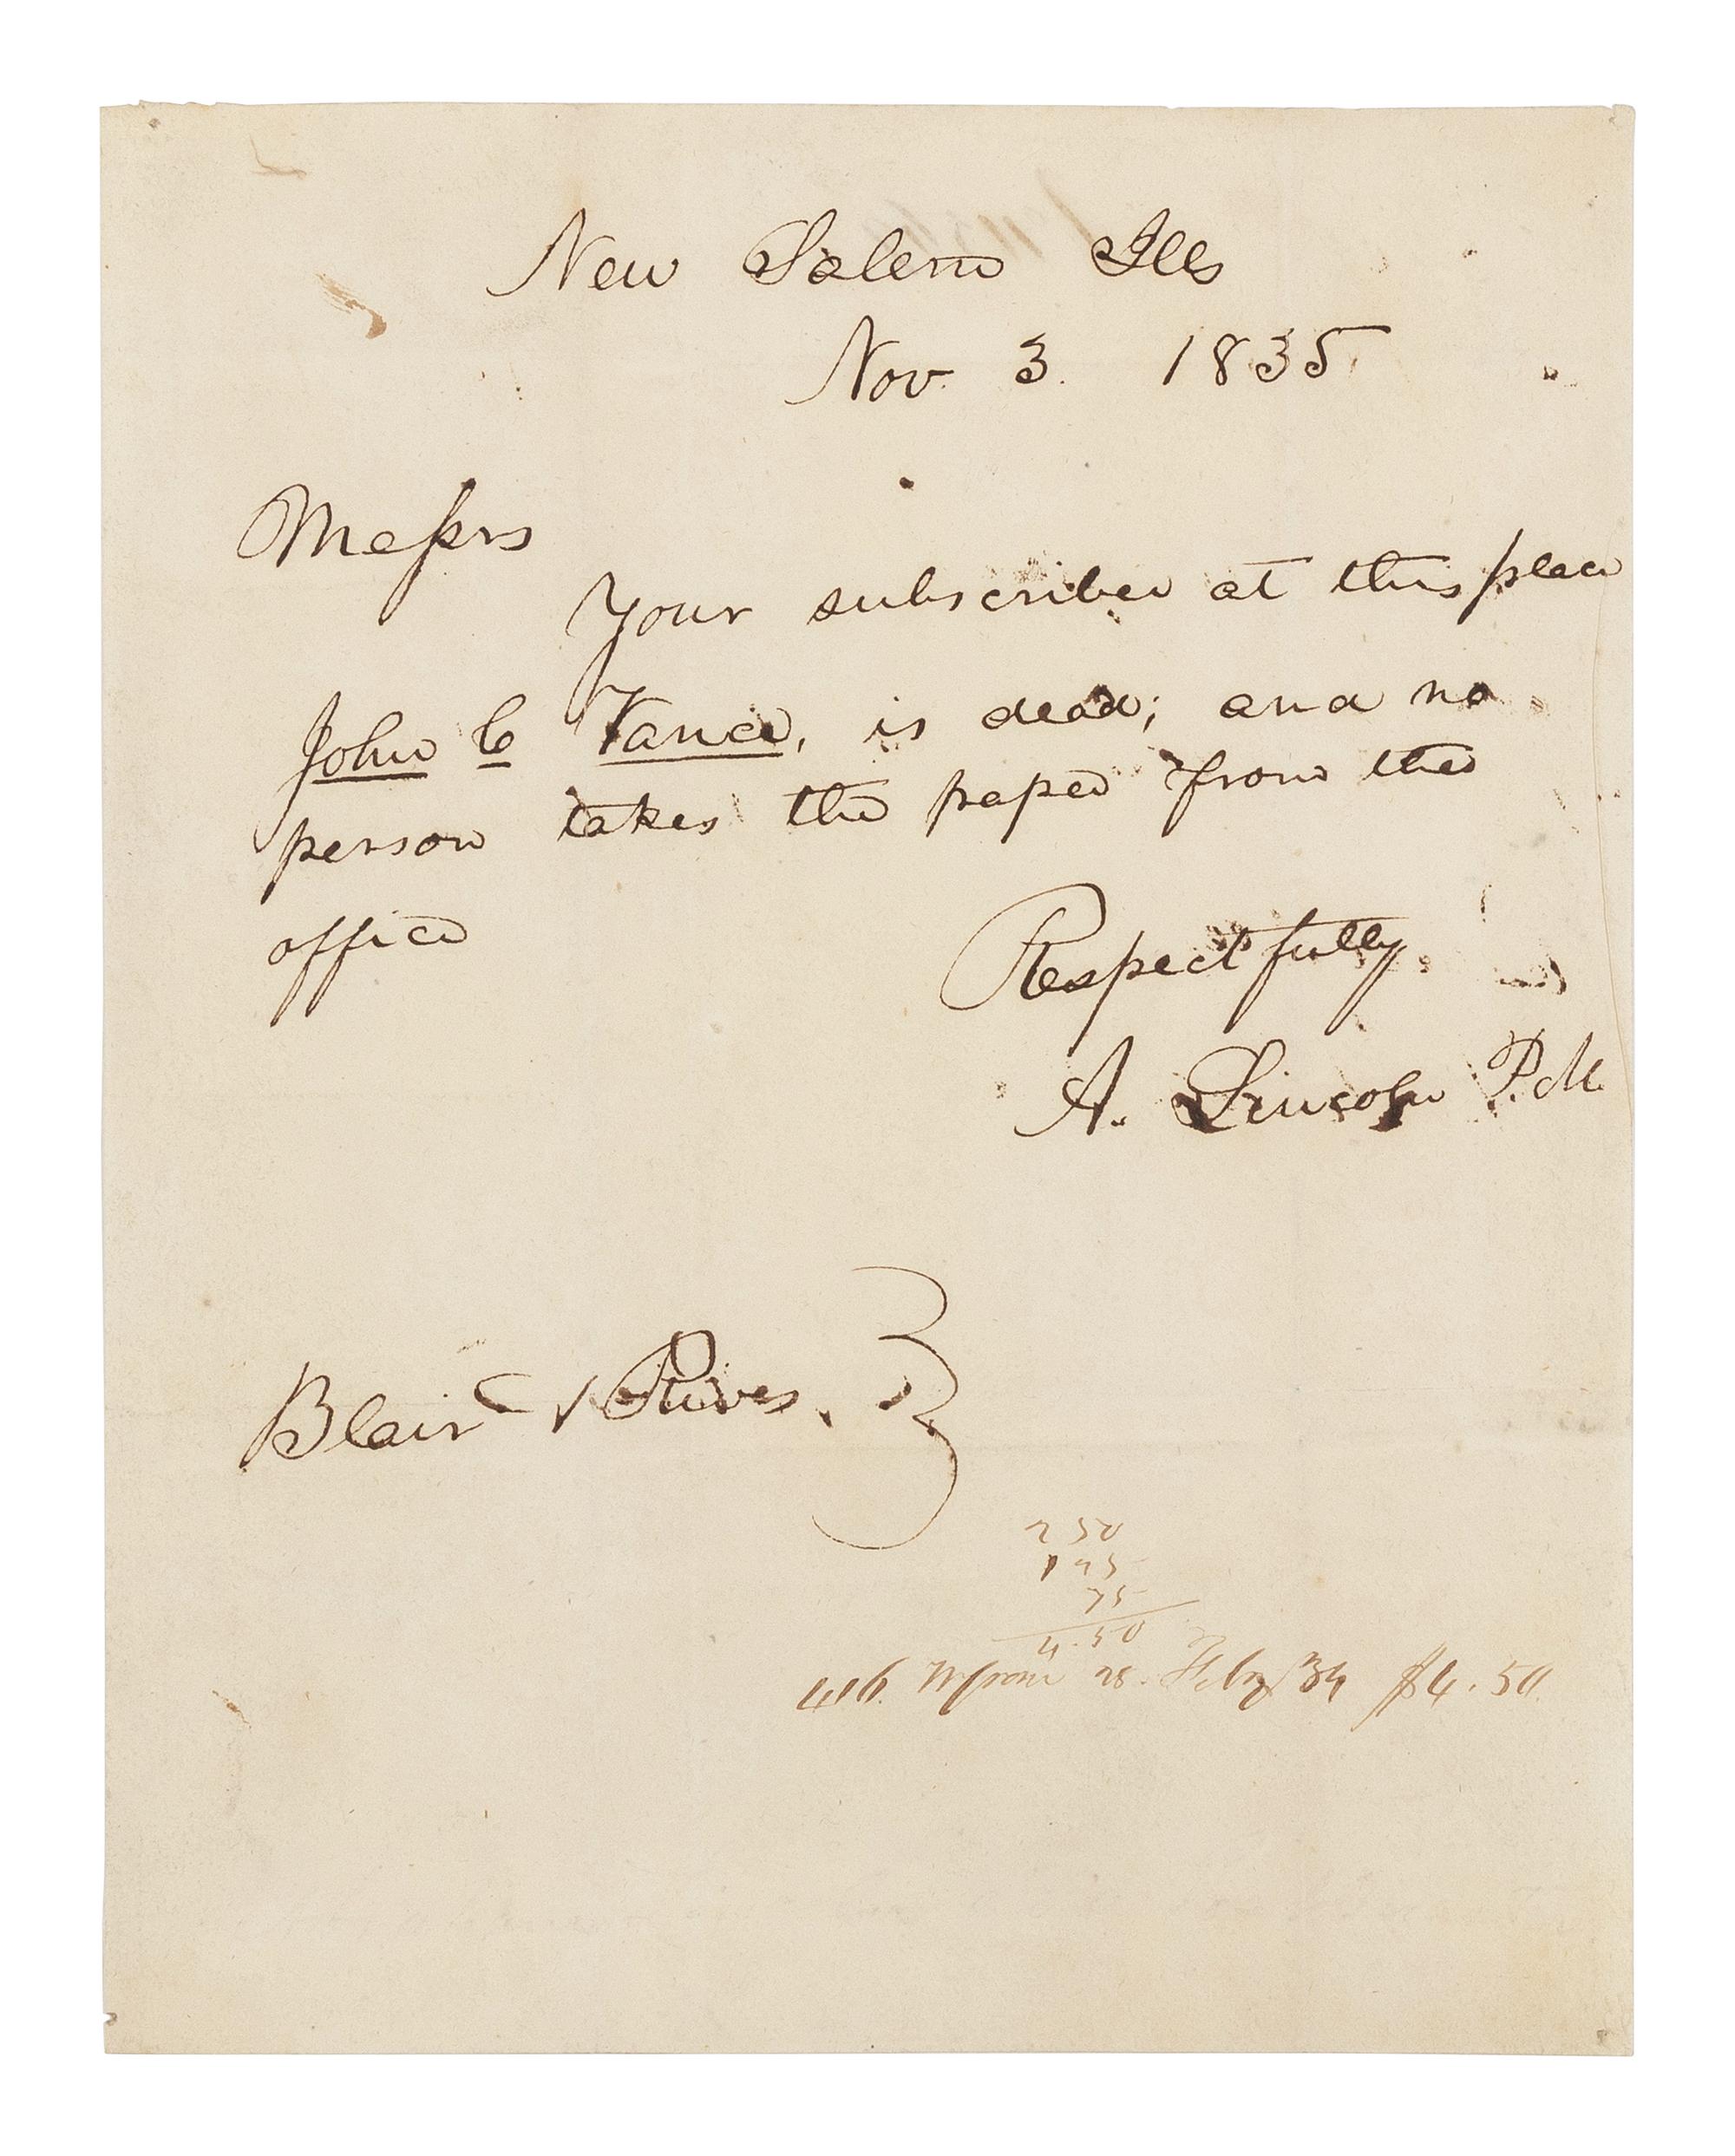 New Salem Ills
Nov. 3. 1835
Messrs
Your subscriber at this place
John C Vance, is dead; and no
person takes the paper from the
office
Respectfully.
A. Lincoln P.M.
Blair & Rives.
250
125
75
4.50
28. Feby 34 $4.50.